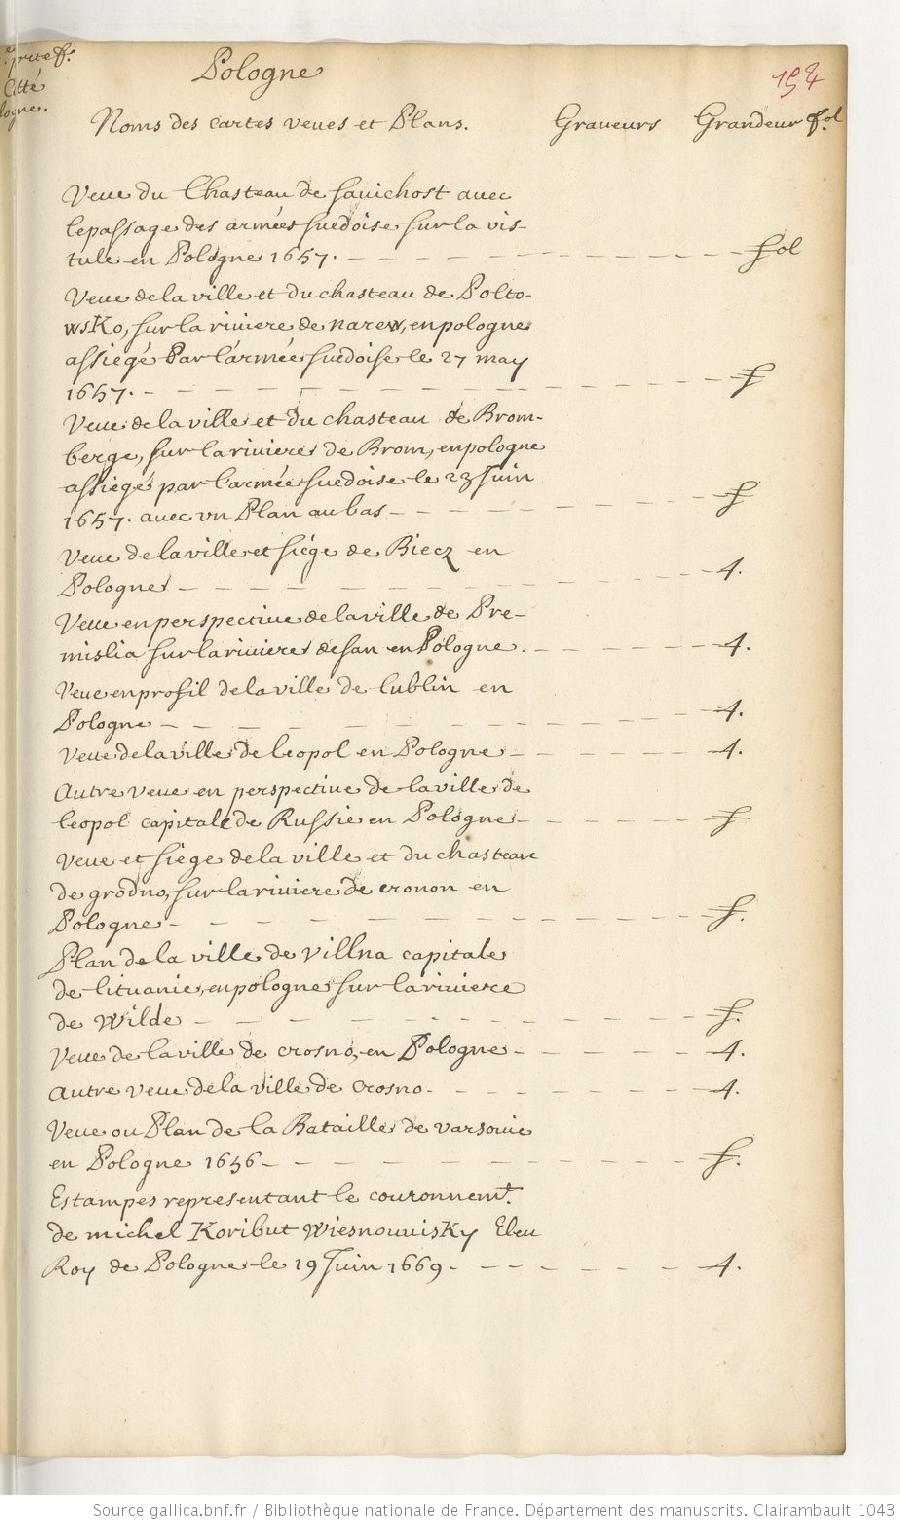 Pologne
152
Noms des cartes veues et Plans. Graveurs Grandeur fol
Veue du Chasteau de Savichost avec
le passage des armées suedoise sur la vis-
tule en Pologne 1657. fol
Veue de la ville et du chasteau de Polto-
wsKo, sur la riviere de narew, en pologne
assiegé Par l'armée suedoise le 27 may
1657. f
Veue de la ville et du chasteau de Brom-
berge, sur la riviere de Brom, en pologne
assiegé par l'armée suedoise le 23 Juin
1657. avec vn Plan au bas f
Veue de la ville et siége de Biecz en
Pologne 4.
Veue en perspective de la ville de Pre-
mislia sur la riviere de san en Pologne. 4.
Veue en profil de la ville de lublin en
Pologne 4.
Veue de la ville de leopol en Pologne 4.
Autre veue en perspective de la ville de
leopol capitale de Russie en Pologne f
Veue et siége de la ville et du chasteau
de grodno, sur la riviere de cronon en
Pologne f.
Plan de la ville de Villna capitale
de lituanie, en pologne sur la riviere
de Wilde f.
Veue de la ville de crosno, en Pologne 4.
Autre veue de la ville de crosno. 4.
Veue ou Plan de la Bataille de varsovie
en Pologne 1656 f.
Estampes representant le couronnemt.
de michel Koribut WiesnouvisKy Eleu
Roy de Pologne le 19 Juin 1669. 4.
Source gallica.bnf.fr / Bibliothèque nationale de France. Département des manuscrits. Clairambault 1043